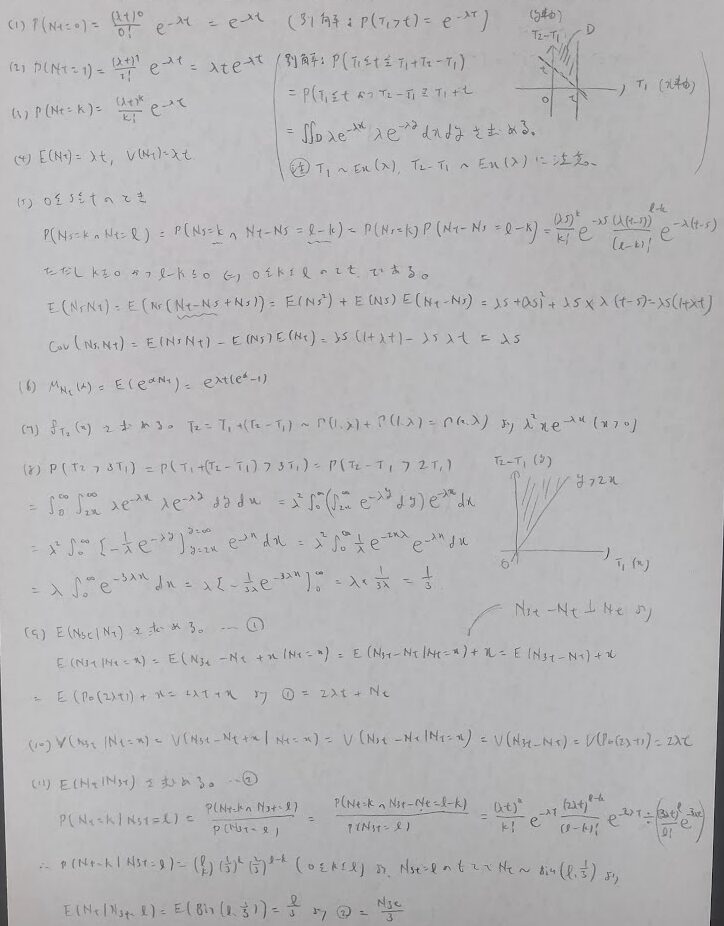 (1) P(Nt=0) = (λt)^0/0! e^{-λt} = e^{-λt} (別解: P(T1>t) = e^{-λt})
(2) P(Nt=1) = (λt)^1/1! e^{-λt} = λte^{-λt}
別解: P(T1≦t≦T1+T2-T1)
= P(T1≦t かつ T2-T1≧-T1+t)
= ∬D λe^{-λx} λe^{-λy} dxdy を求める。
注 T1~Ex(λ), T2-T1~Ex(λ)に注意。
(y軸)
T2-T1
D
t
0
t
T1 (x軸)
(3) P(Nt=k) = (λt)^k/k! e^{-λt}
(4) E(Nt)=λt, V(Nt)=λt
(5) 0≦s≦tのとき
P(Ns=k∩Nt=l) = P(Ns=k∩Nt-Ns=l-k) = P(Ns=k)P(Nt-Ns=l-k) = (λs)^k/k! e^{-λs} (λ(t-s))^{l-k}/(l-k)! e^{-λ(t-s)}
ただし k≧0 かつ l-k≧0 0≦k≦l のときである。
E(NsNt) = E(Ns(Nt-Ns+Ns)) = E(Ns²)+E(Ns)E(Nt-Ns) = λs+(λs)²+λs×λ(t-s)=λs(1+λt)
Cov(Ns,Nt) = E(NsNt)-E(Ns)E(Nt) = λs(1+λt)-λsλt = λs
(6) M_{Nt}(α) = E(e^{αNt}) = e^{λt(e^α-1)}
(7) f_{T2}(x) を求める。 T2=T1+(T2-T1) ~ Γ(1,λ)+Γ(1,λ)=Γ(2,λ) より λ²xe^{-λx} (x>0)
(8) P(T2>3T1) = P(T1+(T2-T1)>3T1) = P(T2-T1>2T1)
= ∫_0^∞ ∫_{2x}^∞ λe^{-λx} λe^{-λy} dydx = λ²∫_0^∞(∫_{2x}^∞ e^{-λy}dy)e^{-λx}dx
= λ²∫_0^∞ [-1/λ e^{-λy}]_{y=2x}^{y=∞} e^{-λx}dx = λ²∫_0^∞ 1/λ e^{-2xλ} e^{-λx}dx
= λ∫_0^∞ e^{-3λx}dx = λ[-1/3λ e^{-3λx}]_0^∞ = λ×1/3λ = 1/3
T2-T1 (y)
y>2x
0
T1 (x)
(9) E(N3t|Nt) を求める。 … ①
N3t-Nt⊥Nt より
E(N3t|Nt=x) = E(N3t-Nt+x|Nt=x) = E(N3t-Nt|Nt=x)+x = E(N3t-Nt)+x
= E(Po(2λt))+x = 2λt+x より ① = 2λt+Nt
(10) V(N3t|Nt=x) = V(N3t-Nt+x|Nt=x) = V(N3t-Nt|Nt=x) = V(N3t-Nt) = V(Po(2λt)) = 2λt
(11) E(Nt|N3t) を求める。 … ②
P(Nt=k|N3t=l) = P(Nt=k∩N3t=l)/P(N3t=l) = P(Nt=k∩N3t-Nt=l-k)/P(N3t=l) = (λt)^k/k! e^{-λt} (2λt)^{l-k}/(l-k)! e^{-2λt} ÷ ((3λt)^l/l! e^{-3λt})
∴ P(Nt=k|N3t=l) = (l k)(1/3)^k(2/3)^{l-k} (0≦k≦l) より N3t=l のもとで Nt~Bin(l,1/3) より,
E(Nt|N3t=l) = E(Bin(l,1/3)) = l/3 より ② = N3t/3